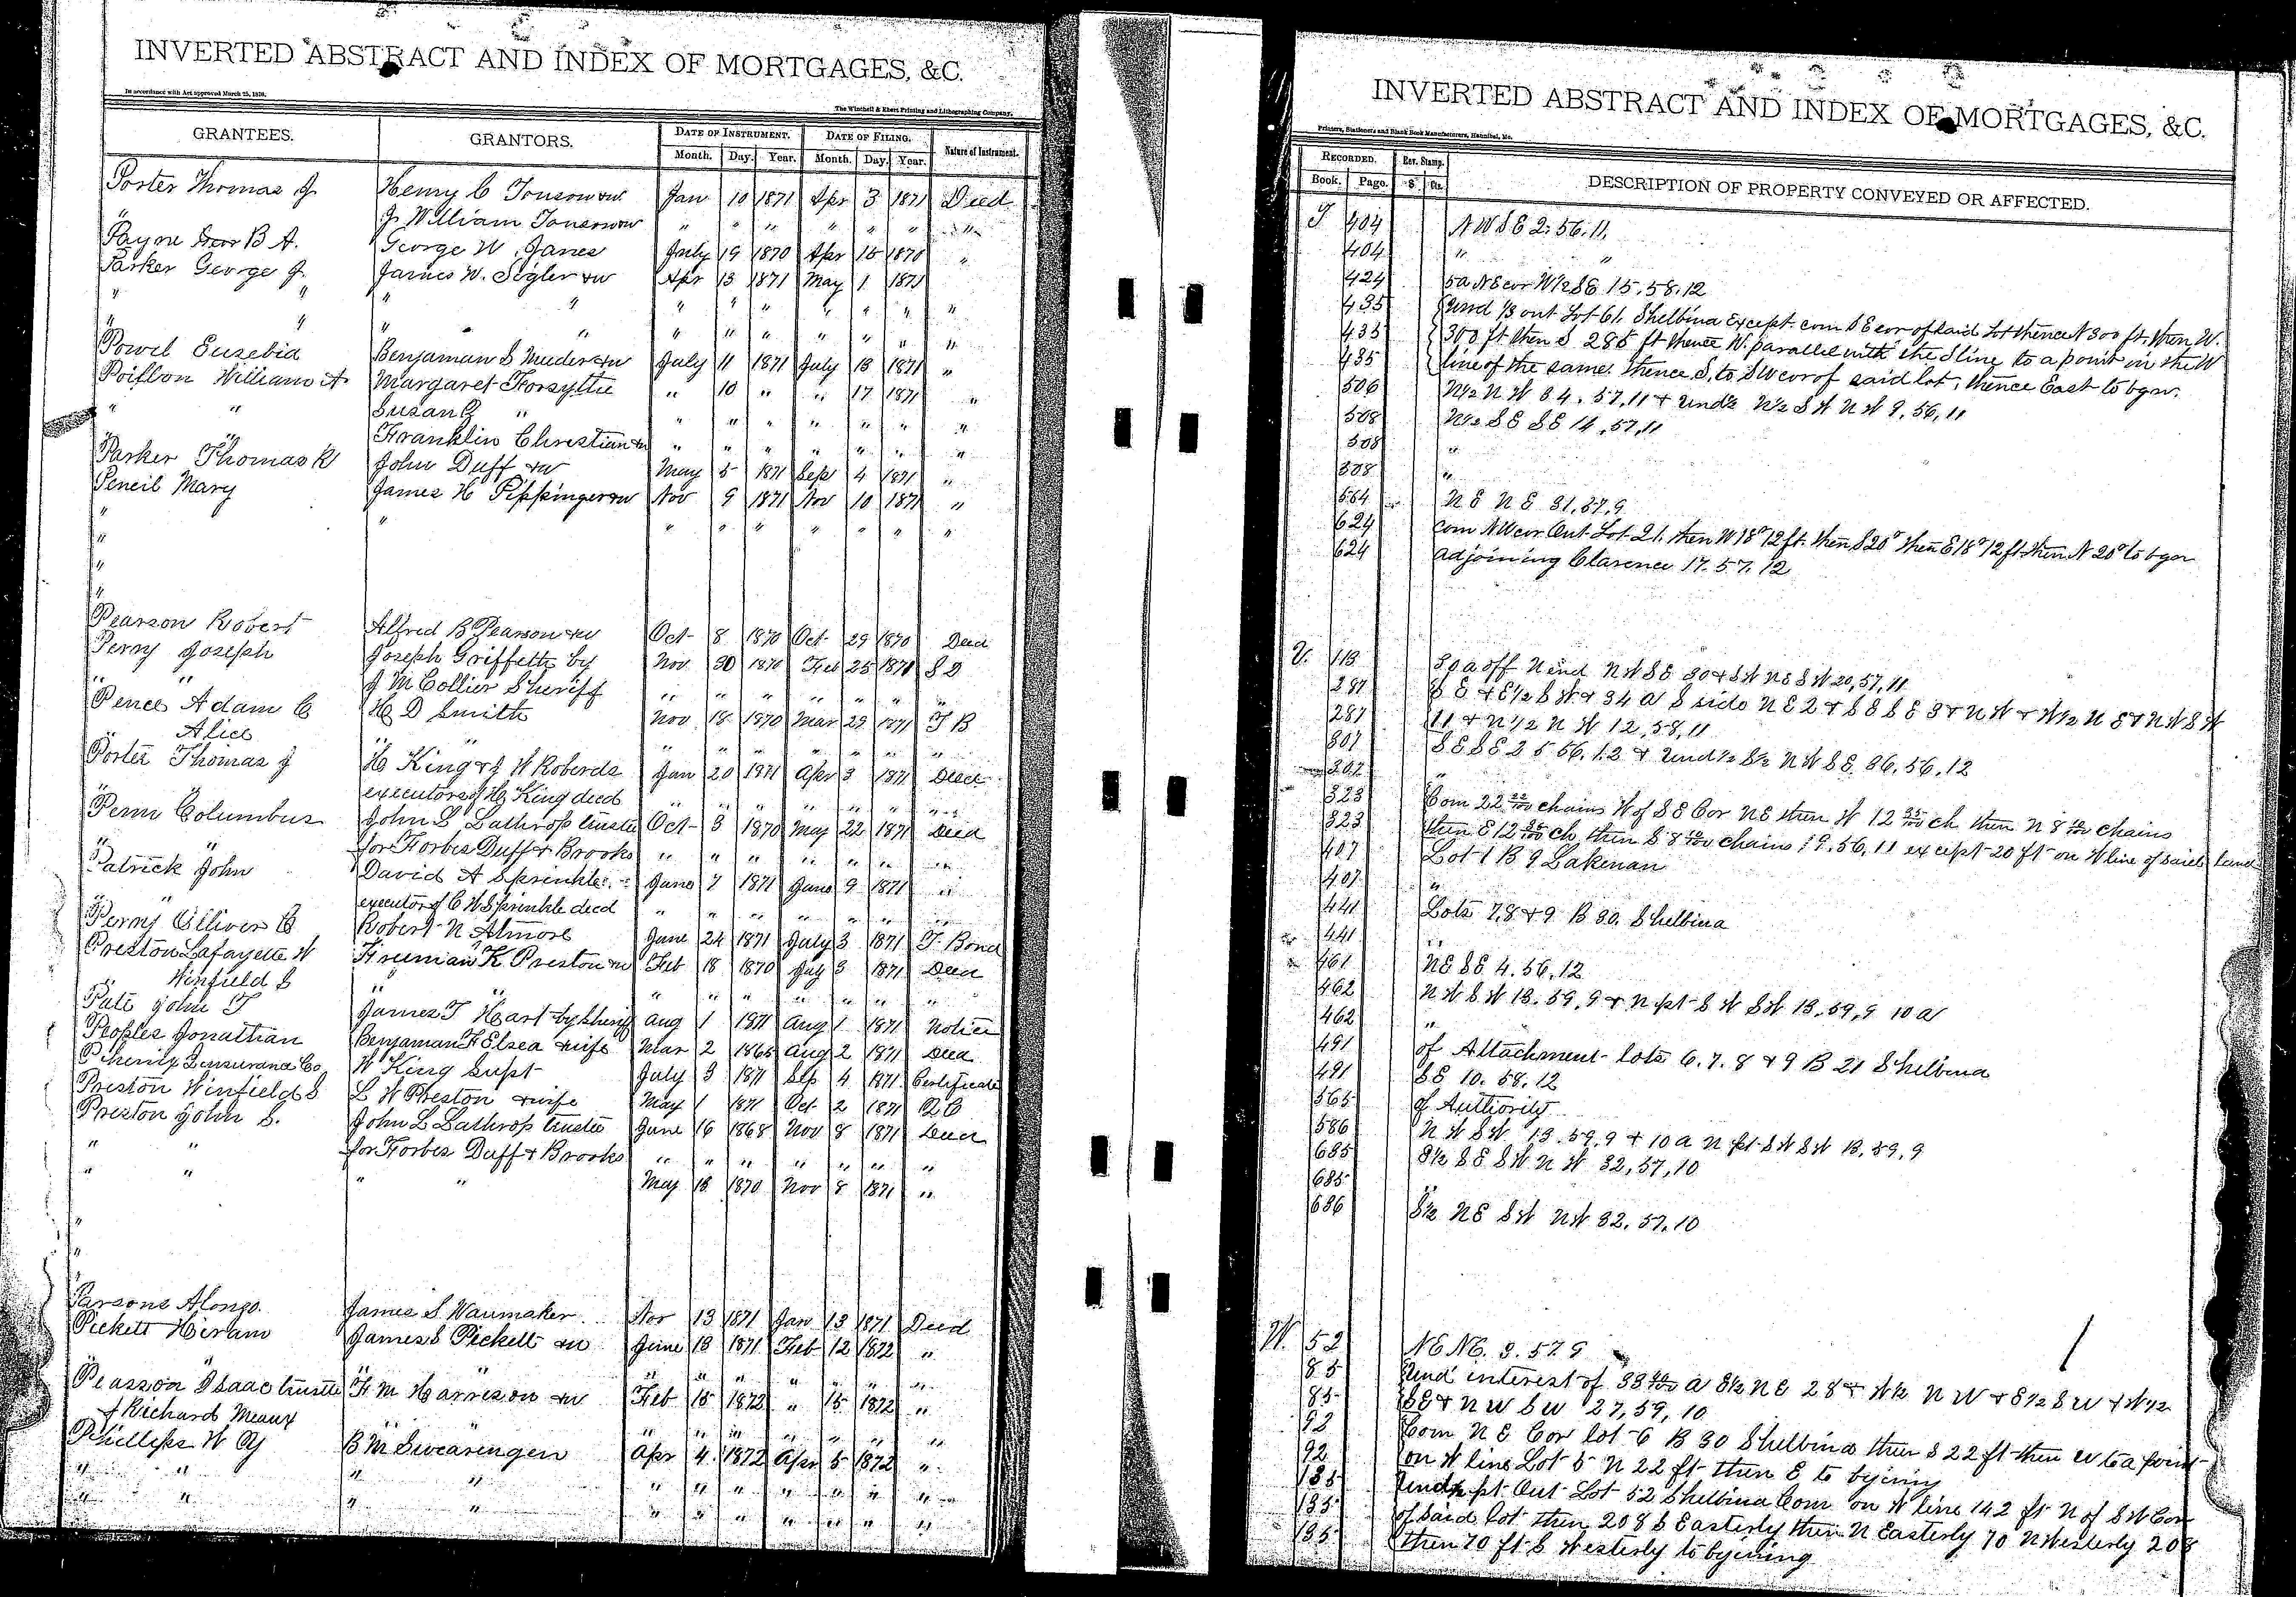 INVERTED ABSTRACT AND INDEX OF MORTGAGES, &C.
In accordance with Act approved March 25, 1870.
The Winchell & Ebert Printing and Lithographing Company,
GRANTEES. GRANTORS. DATE OF INSTRUMENT. DATE OF FILING. Nature of Instrument.
Month. Day. Year. Month. Day. Year.
Porter Thomas J Henry C Tonson & w Jan 10 1871 Apr 3 1871 Deed
" J William Tonson & w " " " " " " "
Payne B A. George W. Janes July 19 1870 Apr 15 1871 "
Parker George J. James W. Sigler & w Apr 13 1871 May 1 1871
" " " " " " " " " " "
" " " " " " " " " " "
Powel Eusebia Benjaman S & w July 11 1871 July 18 1871 "
William A. Margaret Forsythe " 10 " " 17 1871 "
" " Susan G " " " " " " " "
" Franklin Christian & w " " " " " " "
Parker Thomas K John Duff & w May 5 1871 Sep 4 1871 "
Pencil Mary James H Pippinger & w Nov 9 1871 Nov 10 1871 "
" " " " " " " " "
"
"
"
Pearson Robert Alfred B Pearson & w Oct 8 1870 Oct 29 1870 Deed
Perry Joseph Joseph Griffetts by Nov 30 1870 Feb 25 1871 S D
" " J M Collier Sheriff " " " " " " "
Pence Adam C H D Smith Nov 18 1870 Mar 29 1871 T B
" Alice " " " " " " " "
Porter Thomas J H King & J W Roberds Jan 20 1871 Apr 3 1871 Deed
" executors of H King deed " " " " " " "
Penn Columbus John L Lathrop trustee Oct 3 1870 May 22 1871 Deed
" " for Forbes Duff & Brooks " " " " " " "
Patrick John David A Sprinkle June 7 1871 June 9 1871 "
" " executor of C W Sprinkle deed " " " " " " "
Perry Olliver C Robert N Atmore June 24 1871 July 3 1871 T. Bond
Preston Lafayette W Freeman K Preston & w Feb 18 1870 July 3 1871 Deed
" Winfield S " " " " " " " "
Pate John T James T Hart by Sheriff Aug 1 1871 Aug 1 1871 Notice
Peoples Jonathan Benjaman F Elsea & wife Mar 2 1865 Aug 2 1871 Deed
Phenix Insurance Co W King Supt July 3 1871 Sep 4 1871 Certificate
Preston Winfield S L W Preston & wife May 1 1871 Oct 2 1871 Q C
Preston John S. John L Lathrop trustee June 16 1868 Nov 8 1871 Deed
" " for Forbes Duff & Brooks " " " " " " "
" " " " May 18 1870 Nov 8 1871 "
"
"
"
Parsons Alonzo. James S Wanmaker Nov 13 1871 Jan 13 1871 Deed
Pickett Hiram James S Pickett & w June 13 1871 Feb 12 1872 "
" " " " " " " " " "
Pearson Isaac trustee F M Harrison & w Feb 15 1872 " 15 1872 "
of Richard Meaux " " " " " " " "
Phillips W Y B M Swearingen Apr 4 1872 Apr 5 1872 "
" " " " " " " " " " "
" " " " " " " " " " "
INVERTED ABSTRACT AND INDEX OF MORTGAGES, &C.
Printers, Stationers and Blank Book Manufacturers, Hannibal, Mo.
RECORDED. Rev. Stamp. DESCRIPTION OF PROPERTY CONVEYED OR AFFECTED.
Book. Page. $ Cts.
T 404 N W S E 2. 56. 11.
404 " "
424 5 a N E cor W 1/2 S E 15. 58. 12
435 Und 1/3 out Lot 61. Shelbina Except com S E cor of said Lot thence N 300 ft. then W.
435 300 ft then S 285 ft thence W. parallel with the S line to a point in the W
435 line of the same thence S. to S W cor of said lot, thence East to bgn.
506 N 1/2 N W 34. 57. 11 & Und 1/2 N 1/2 S W N W 9. 56, 11
508 N 1/2 S E S E 14, 57, 11
508 "
508 "
564 N E N E 31, 57, 9
624 Com N W cor Out Lot 21. then W 18° 12 ft. then S 20° then E 18° 12 ft then N 20° to bgn
624 adjoining Clarence 17. 57. 12
V. 113 30 a off N end N W S E 30 & S W N E S W 20, 57, 11
287 S E & E 1/2 S W & 34 a S side N E 2 & S E S E 3 & N W & W 1/2 N E & N W S W
287 11 & N 1/2 N W 12, 58, 11
307 S E S E 25 56. 12 & Und 1/2 S 1/2 N W S E 36, 56, 12
307 "
323 Com 22 22/100 chains W of S E Cor N E then W 12 25/100 ch then N 8 chains
323 then E 12 25/100 ch then S 8 chains 9. 56. 11 except 20 ft on W line of said land
407 Lot 1 B 9 Lakenan
407 "
441 Lots 7, 8 & 9 B 30. Shelbina
441 "
461 N E S E 4. 56, 12
462 N W S W 13. 59, 9 & N pt S W S W 13, 59, 9 10 a
462 "
491 of Attachment lots 6. 7. 8 & 9 B 21 Shelbina
491 S E 10. 58. 12
565 of Authority
586 N W S W 13. 59, 9 & 10 a N pt S W S W 13, 59, 9
685 S 1/2 S E S W N W 32, 57, 10
685 "
686 S 1/2 N E S W N W 32, 57, 10
W. 52 N E N E. 3. 57. 9
85 Und interest of 33 a S 1/2 N E 28 & W 1/2 N W & E 1/2 S W & W 1/2
85 S E & N W S W 27, 59, 10
92 Com N E Cor lot 6 B 30 Shelbina then S 22 ft then W to a point
92 on W line Lot 5 N 22 ft then E to bgining
135 Und 1/2 pt Out Lot 52 Shelbina Com on W line 142 ft N of S W Cor
135 of said lot then 208 S Easterly then N Easterly 70 N Westerly 208
135 then 70 ft S Westerly to bgining